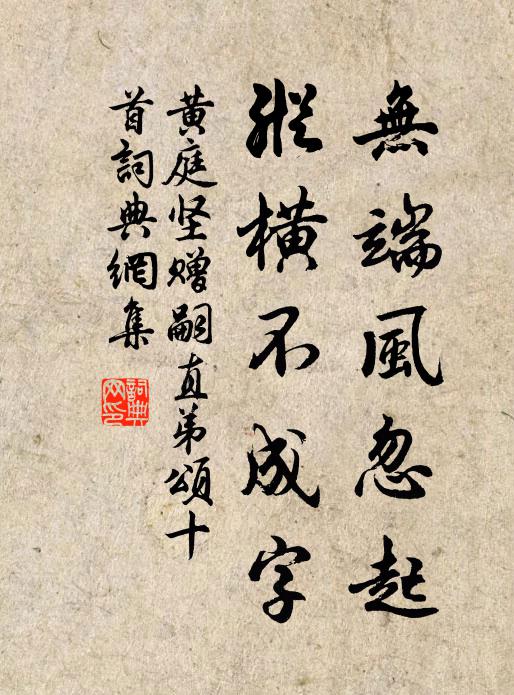 無端風忽起
縱橫不成字
黄庭坚贈嗣直弟頌十
首詞典網集
詞典
网印